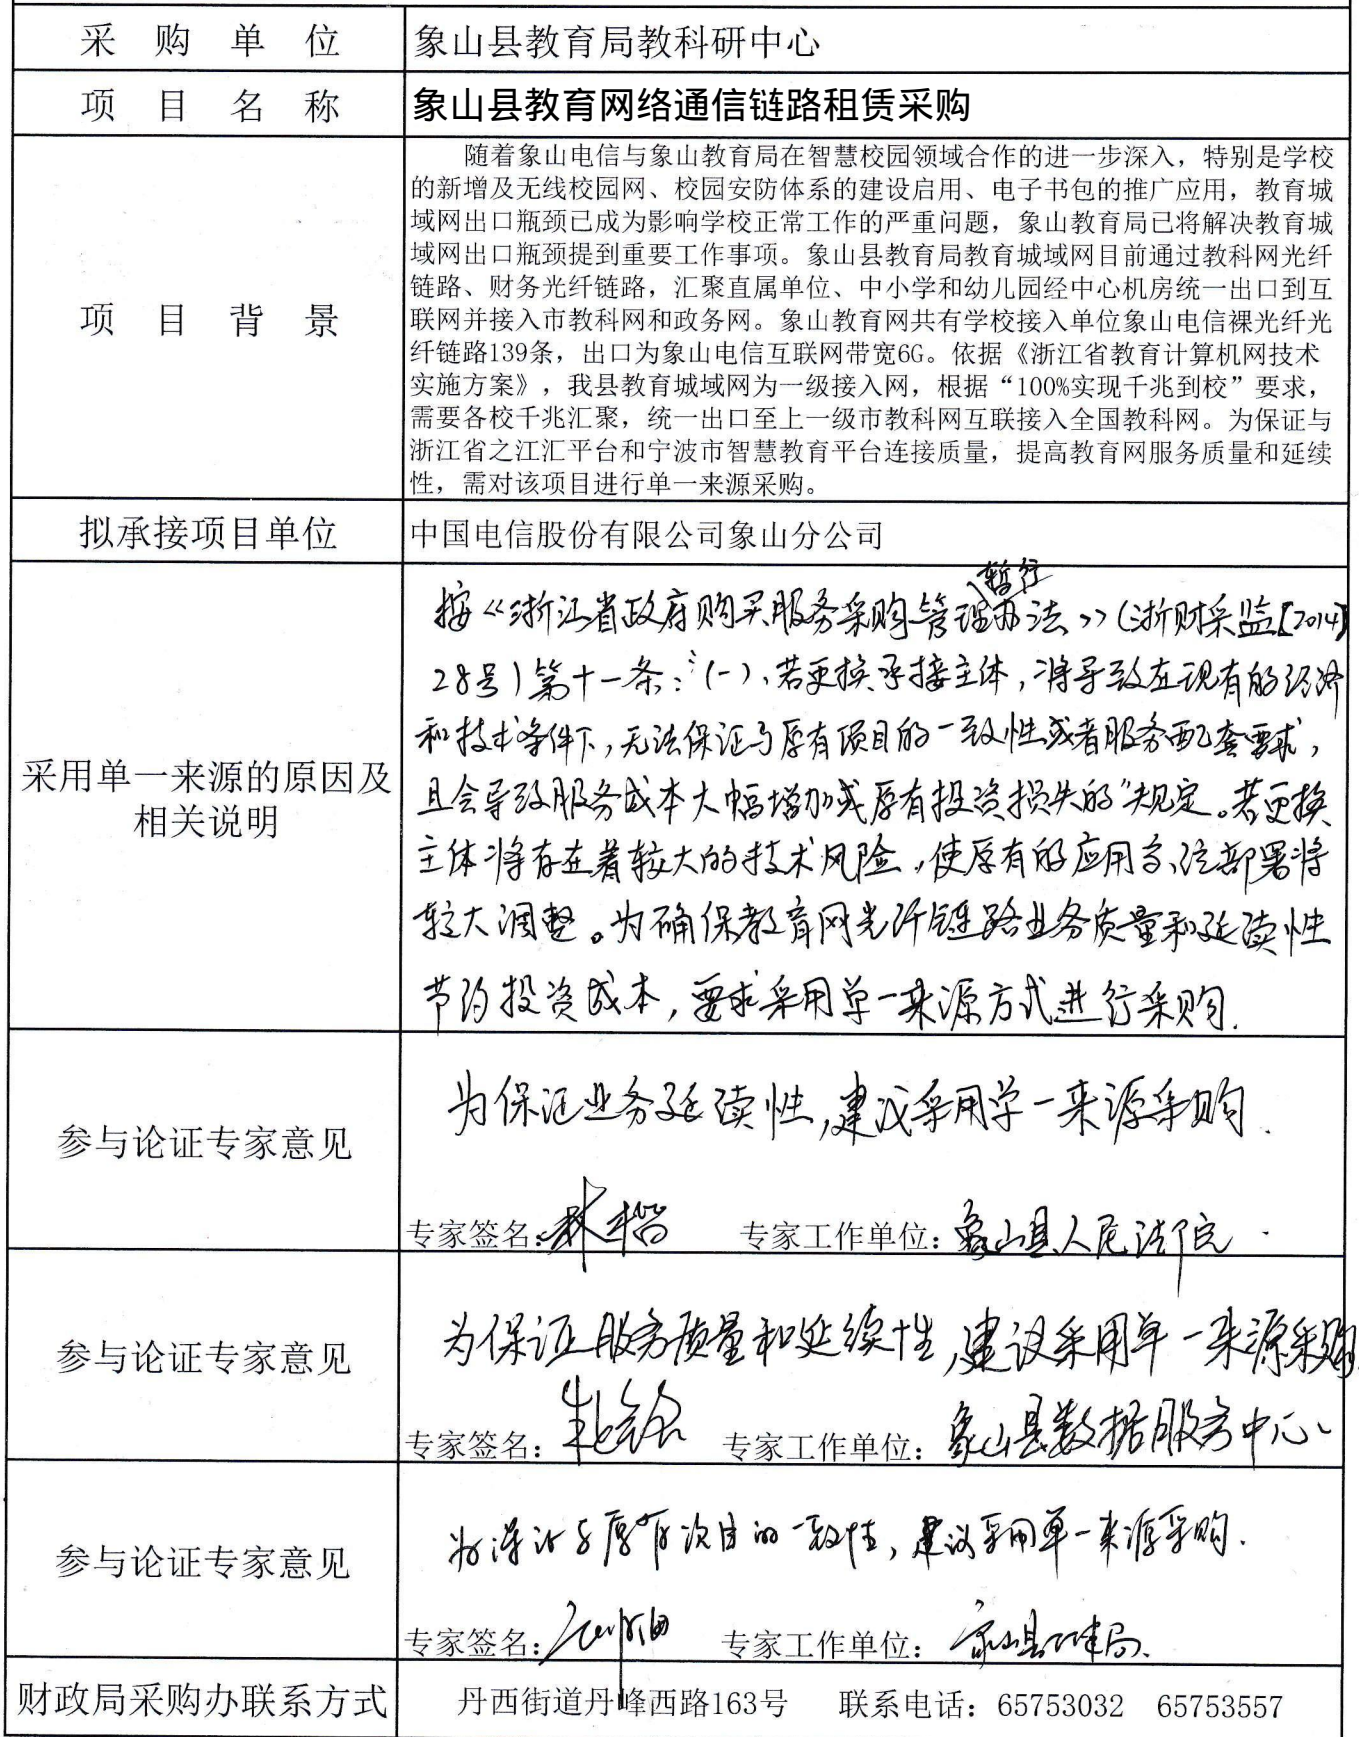 采购单位 象山县教育局教科研中心
项目名称 象山县教育网络通信链路租赁采购
项目背景
随着象山电信与象山教育局在智慧校园领域合作的进一步深入，特别是学校
的新增及无线校园网、校园安防体系的建设启用、电子书包的推广应用，教育城
域网出口瓶颈已成为影响学校正常工作的严重问题，象山教育局已将解决教育城
域网出口瓶颈提到重要工作事项。象山县教育局教育城域网目前通过教科网光纤
链路、财务光纤链路，汇聚直属单位、中小学和幼儿园经中心机房统一出口到互
联网并接入市教科网和政务网。象山教育网共有学校接入单位象山电信裸光纤光
纤链路139条，出口为象山电信互联网带宽6G。依据《浙江省教育计算机网技术
实施方案》，我县教育城域网为一级接入网，根据“100%实现千兆到校”要求，
需要各校千兆汇聚，统一出口至上一级市教科网互联接入全国教科网。为保证与
浙江省之江汇平台和宁波市智慧教育平台连接质量，提高教育网服务质量和延续
性，需对该项目进行单一来源采购。
拟承接项目单位 中国电信股份有限公司象山分公司
采用单一来源的原因及
相关说明
暂行
按《浙江省政府购买服务采购管理办法》(浙财采监【2014】
28号)第十一条："(一)、若更换承接主体，将导致在现有的经济
和技术条件下，无法保证与原有项目的一致性或者服务配套要求，
且会导致服务成本大幅增加或原有投资损失的"规定。若更换
主体将存在着较大的技术风险，使原有的应用系统部署将
较大调整。为确保教育网光纤链路业务质量和延续性
节约投资成本，要求采用单一来源方式进行采购.
参与论证专家意见
为保证业务延续性，建议采用单一来源采购.
专家签名： 专家工作单位：象山县人民法院
参与论证专家意见
为保证服务质量和延续性，建议采用单一来源采购
专家签名： 专家工作单位：象山县数据服务中心
参与论证专家意见
为保证与原有项目的一致性，建议采用单一来源采购.
专家签名： 专家工作单位：象山县局.
财政局采购办联系方式 丹西街道丹峰西路163号 联系电话：65753032 65753557